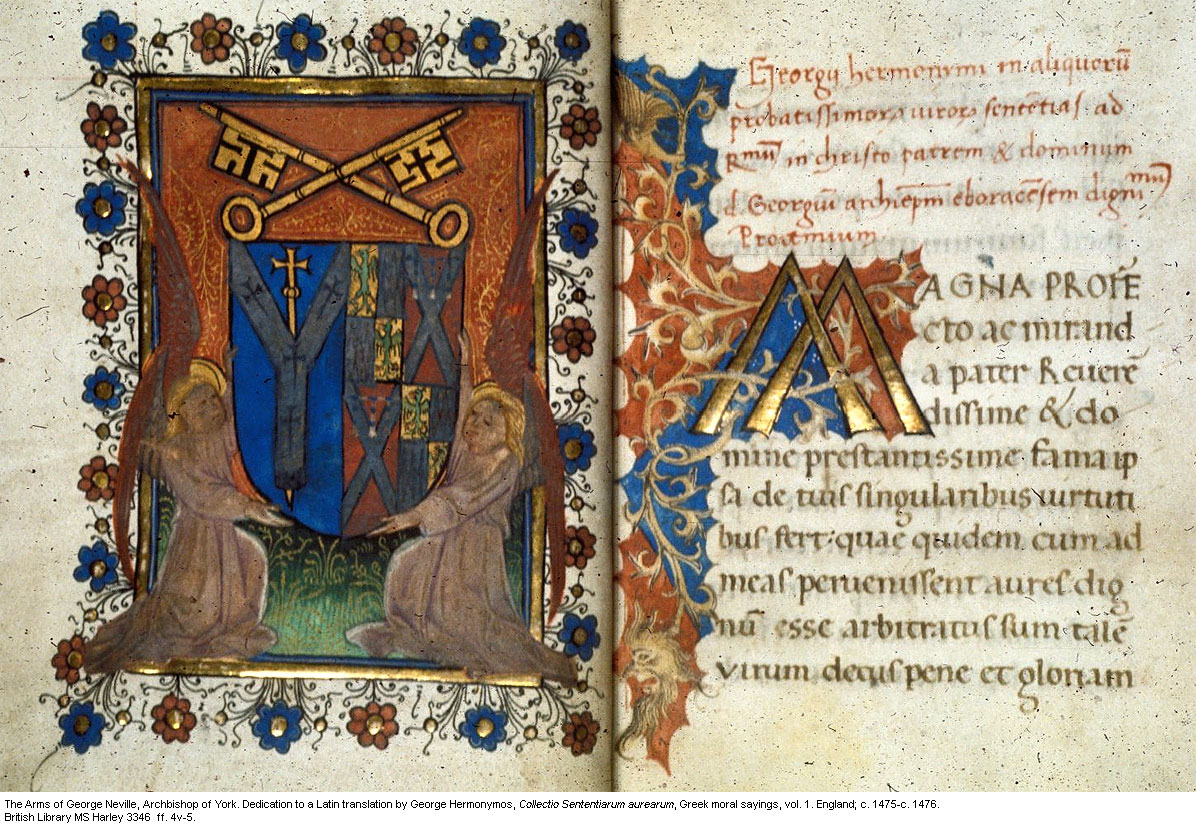 Georgij hermonymi in aliquorū
probatissimoꝝ uiroꝝ sentētias ad
Rmū in christo patrem & dominum
d. Georgiū archiepm̄ eboracēsem dignimū
Prooemium
MAGNA PROFE
cto ac mirand
a pater Reuerē
dissime & do
mine prestantissime fama ip
sa de tuis singularibus uirtuti
bus fert: quae quidem cum ad
meas peruenissent aures dig
nū esse arbitratus sum talē
virum decus pene et gloriam
The Arms of George Neville, Archbishop of York. Dedication to a Latin translation by George Hermonymos, Collectio Sententiarum aurearum, Greek moral sayings, vol. 1. England; c. 1475-c. 1476.
British Library MS Harley 3346 ff. 4v-5.